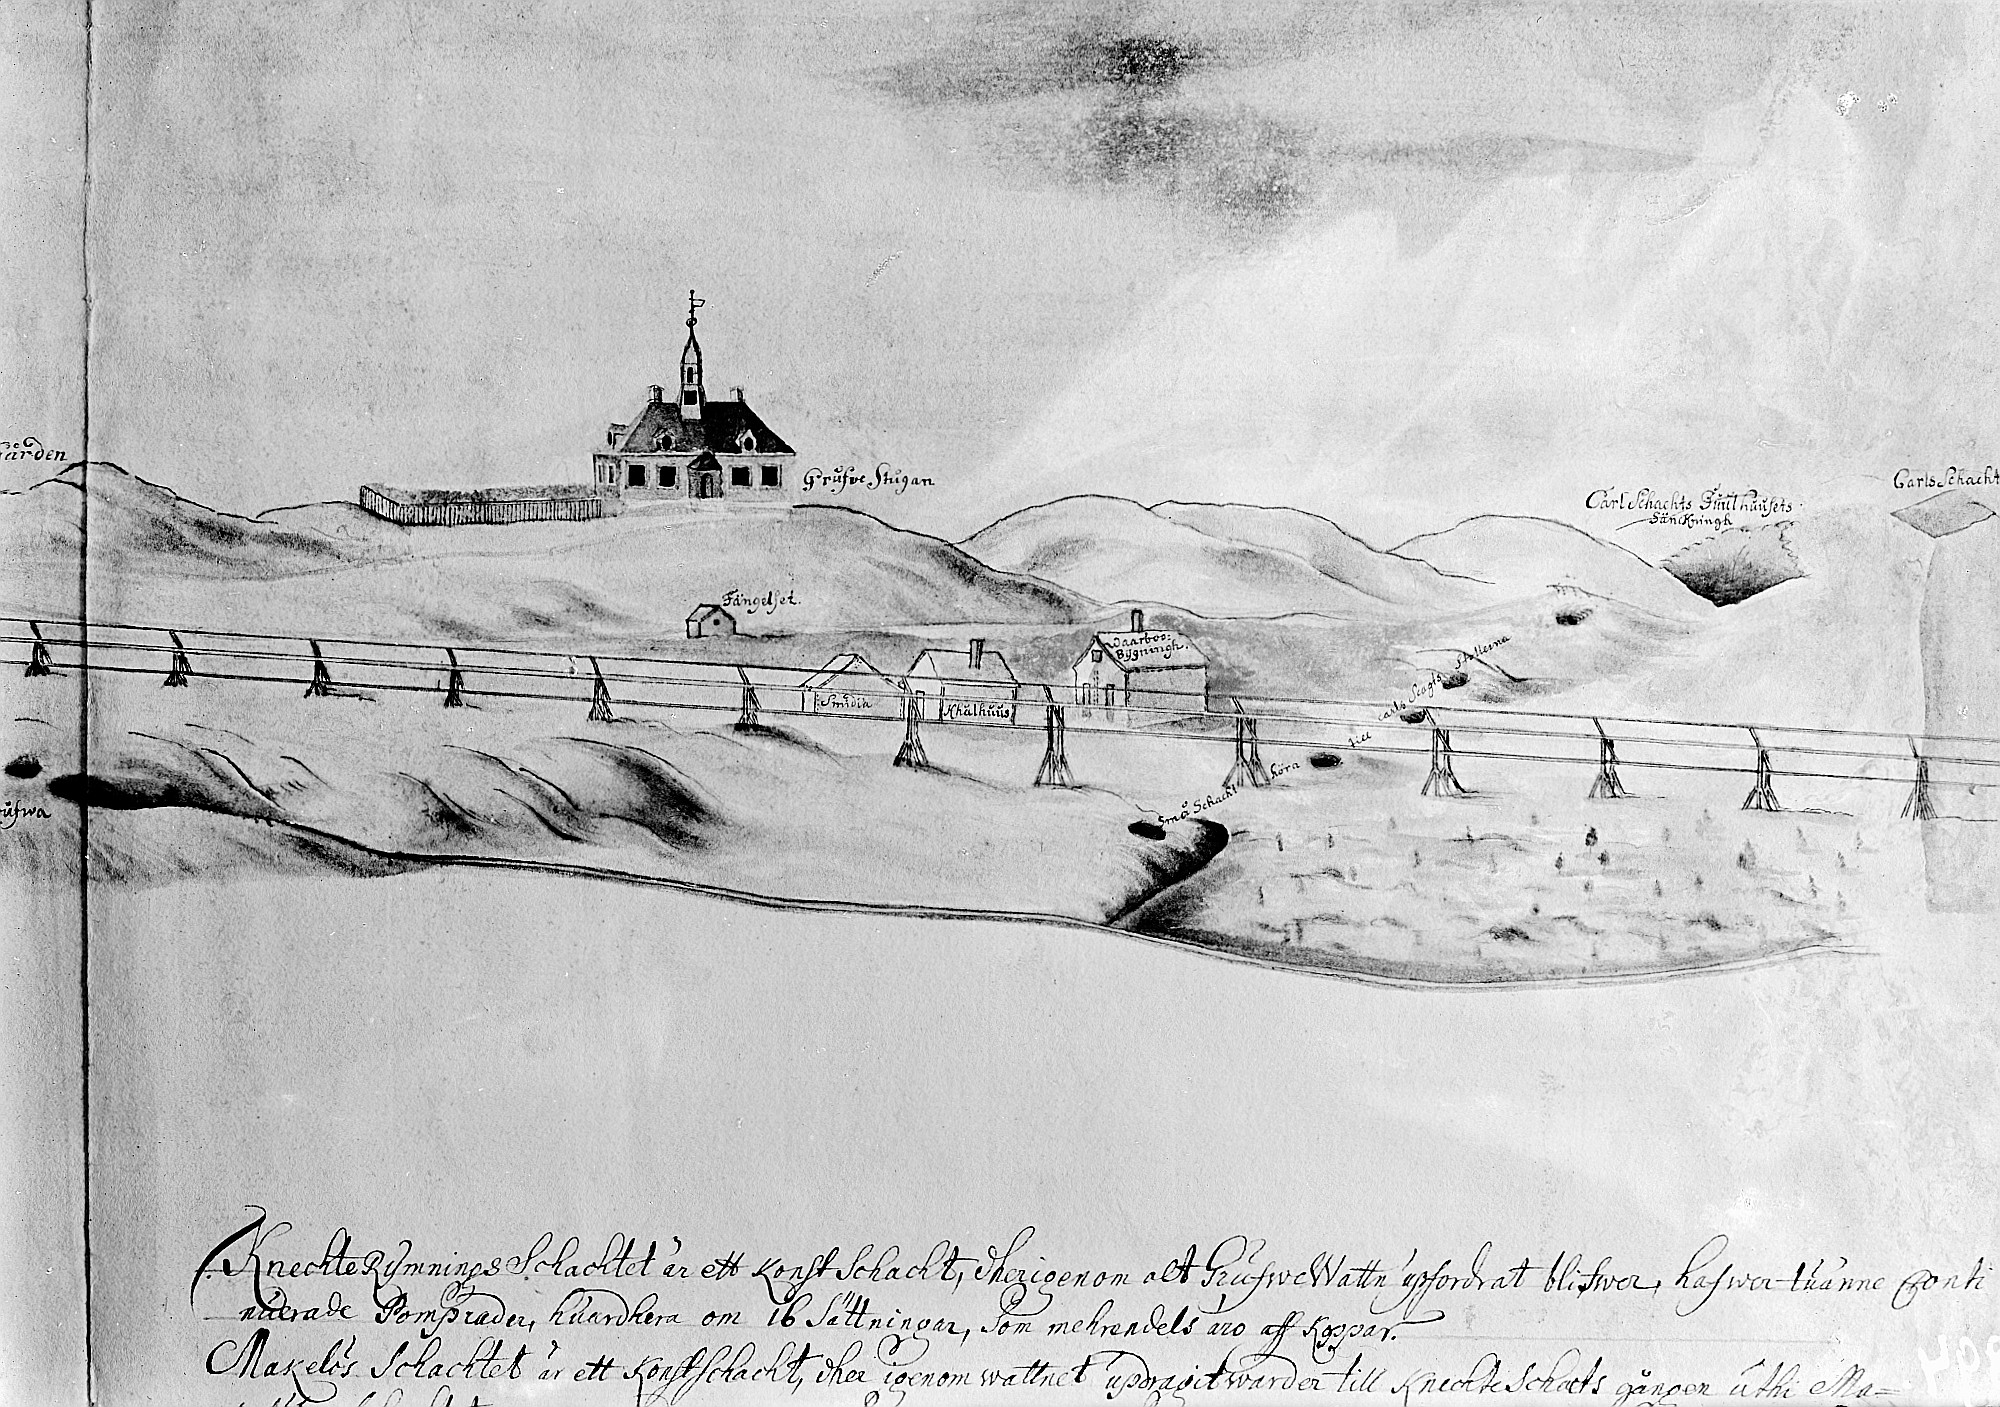 gården
Grufve Stugan
Carl Schachts Giulhuusets
Sänckningh
Carls Schacht
Fängelset.
Waarboo-
Bygningh.
Smidia
Khålhuus
Små Schackt höra till Carls Slagts Stellerna
ufwa
Knechte Rymnings Schachtet är ett Konst Schacht, dherigenom alt Grufwe Wattn upfordrat blifwer, hafwer tuänne Conti
nuerade Pomprader, huardhera om 16 Sättningar, som mehrendels äro aff Koppar.
Makelös Schachtet är ett Konstschacht, dher igenom wattnet updragit warder till Knechte Schacts gången uthi Ma=